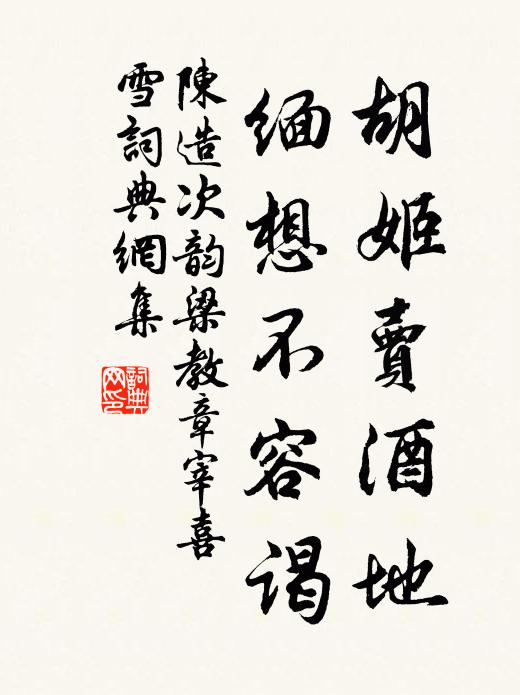 胡姬賣酒地
緬想不容谒
陳造次韵梁教章宰喜
雪詞典網集
詞典网印